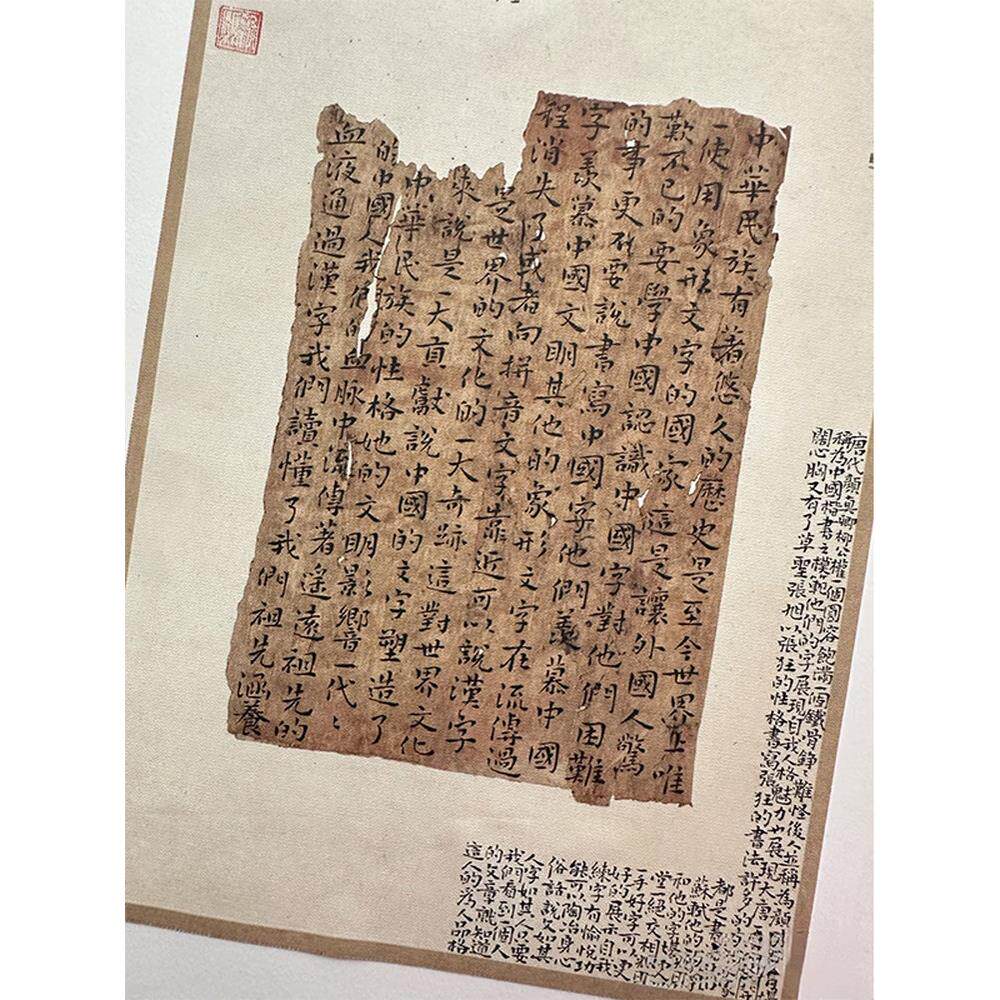 中華民族有著悠久的歷史是至今世界上唯
一使用象形文字的國家這是讓外國人驚
歎不已的要學中國認識中國字對他們困難
的事更不要說書寫中國字他們羨慕中國
字羨慕中國文明其他的象形文字在流傳過
程消失了或者向拼音文字靠近可以說漢字
是世界的文化的一大奇跡這對世界文化
來說是一大貢獻說中國的文字塑造了
中華民族的性格她的文明影響一代々
的中國人我們的血脈中流傳著遙遠祖先的
血液通過漢字我們讀懂了我們祖先涵養
唐代顏真卿柳公權一個圓容飽滿一個鐵骨錚々難怪後人並稱為顏
稱為中國楷書之模範他們的字展現自我人格魅力也展現大唐
闊心胸又有了草聖張旭以張狂的性格書寫張狂的書法許多的
都是書
蘇軾他的
和他的字
堂一絕交相
一手好字可以更
好的展示自我
練字有愉悅功
能可以陶冶身心
俗話說文如其
人字如其人只要
我們看到一個人
的文章就知道
這人的為人品格